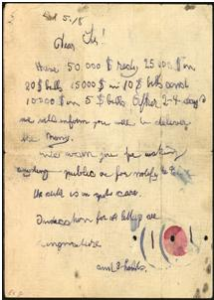 Dear Sir!
Have 50.000 $ redy 25 000 $ in
20 $ bills 15000 $ in 10 $ bills and
10000 $ in 5 $ bills After 2-4 days
we will inform you to deliver
the mony
We warn you for making
anyding public or for notify the
child is in gut care
Indication for all are
Singnature
and 3 holes.